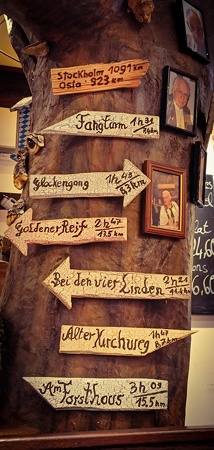 Stockholm 1091 km
Oslo 923 km
Fangturm 1h 31
Glockengang 1h 43
8,3 km
Goldener Reif 2h 47
13,5 km
Bei den vier Linden 2h 21
Alter Kirchweg 1h 47
8,7 km
Am Forsthaus 3h 09
15,5 km